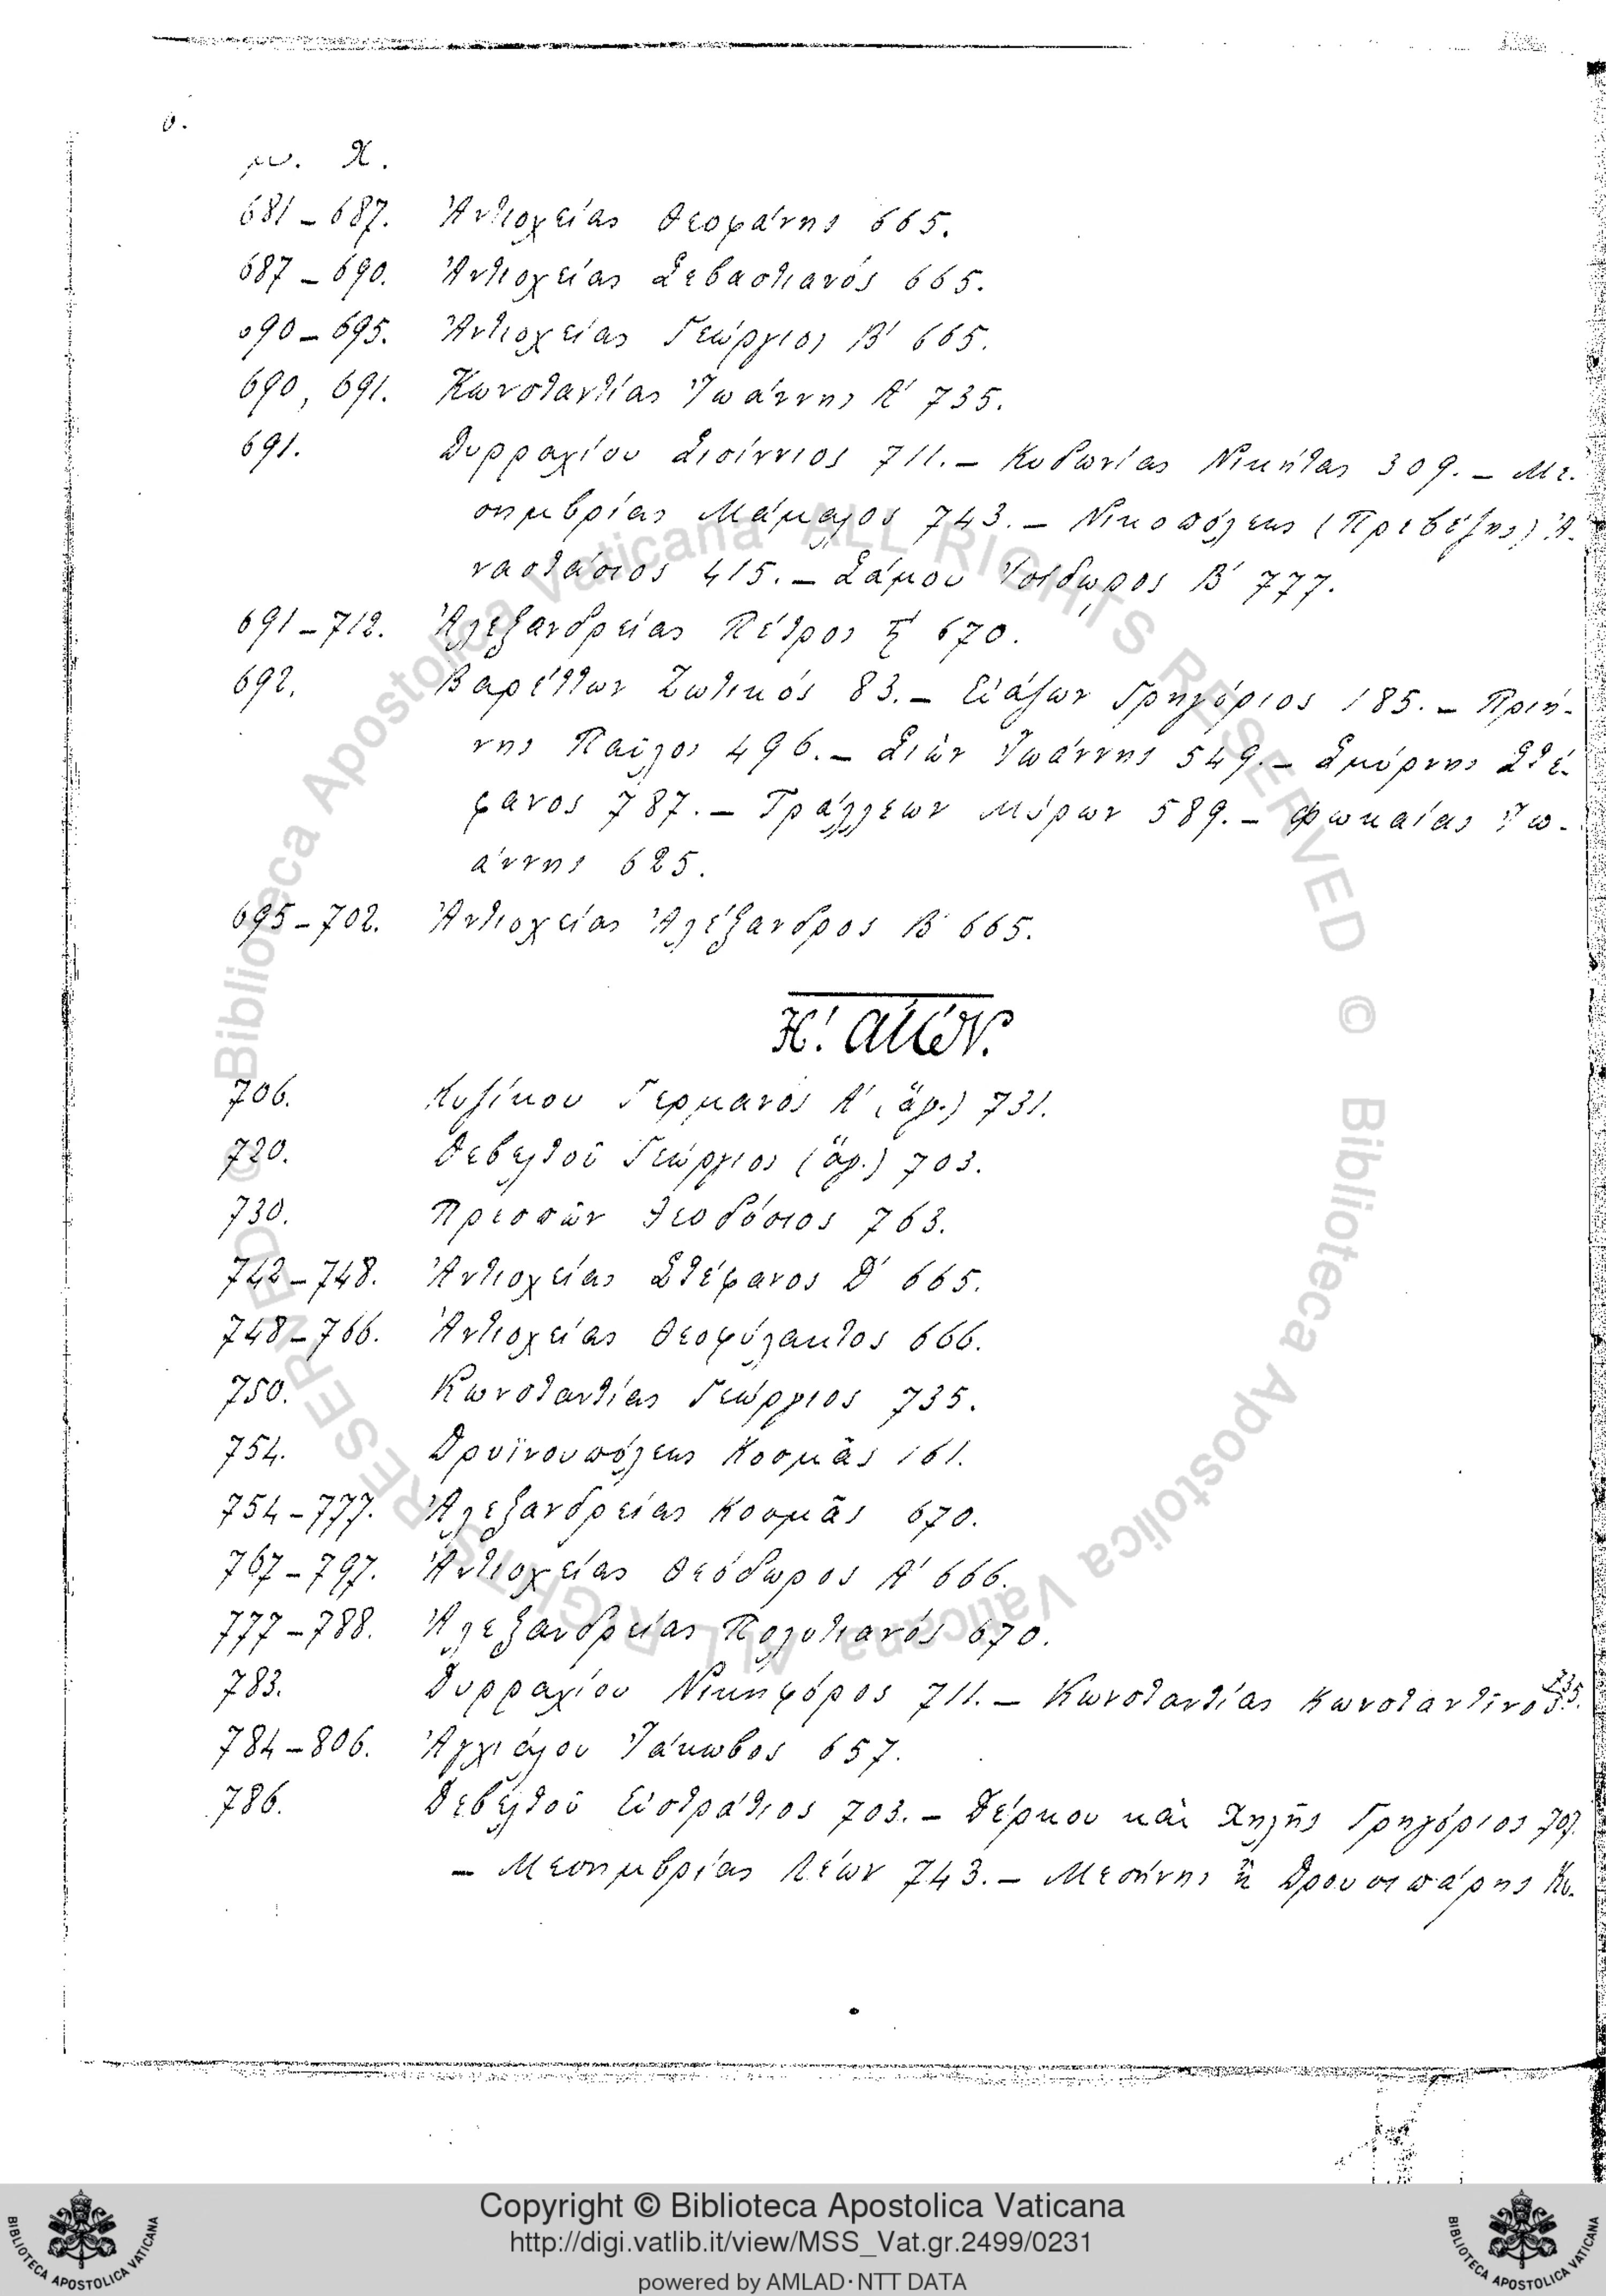 θ.
μ. Χ.
681 – 687. Ἀντιοχείας Θεοφάνης 665.
687 – 690. Ἀντιοχείας Σεβαστιανός 665.
690 – 695. Ἀντιοχείας Γεώργιος Β′ 665.
690, 691. Κωνσταντίας Ἰωάννης Α′ 735.
691. Δυρραχίου Σισίννιος 711. – Κυδωνίας Νικήτας 309. – Με-
σημβρίας Μάμαλος 743. – Νικοπόλεως (Πρεβέζης) Ἀ-
ναστάσιος 415. – Σάμου Ἰσίδωρος Β′ 777.
691 – 712. Ἀλεξανδρείας Πέτρος 670.
692. Βαρέττων Ζωτικός 83. – Εὐάζων Γρηγόριος 185. – Πριή-
νης Παῦλος 496. – Σιῶν Ἰωάννης 549. – Σμύρνης Στέ-
φανος 787. – Τράλλεων Μύρων 589. – Φωκαίας Ἰω-
άννης 625.
695 – 702. Ἀντιοχείας Ἀλέξανδρος Β′ 665.
Η′. αἰών.
706. Κυζίκου Γερμανός Α′ (ἅγ.) 731.
720. Δεβελτοῦ Γεώργιος (ἅγ.) 703.
730. Πρεσπῶν Θεοδόσιος 763.
742 – 748. Ἀντιοχείας Στέφανος Δ′ 665.
748 – 766. Ἀντιοχείας Θεοφύλακτος 666.
750. Κωνσταντίας Γεώργιος 735.
754. Δρυϊνουπόλεως Κοσμᾶς 161.
754 – 777. Ἀλεξανδρείας Κοσμᾶς 670.
767 – 797. Ἀντιοχείας Θεόδωρος Α′ 666.
777 – 788. Ἀλεξανδρείας Πολυτιανός 670.
783. Δυρραχίου Νικηφόρος 711. – Κωνσταντίας Κωνσταντῖνος 735.
784 – 806. Ἀγχιάλου Ἰάκωβος 657.
786. Δεβελτοῦ Εὐστράτιος 703. – Δέρκου καὶ Χηλῆς Γρηγόριος 707.
– Μεσημβρίας Λέων 743. – Μεσήνης ἢ Δρουσιπάρης Κυ-
© Biblioteca Apostolica Vaticana ALL RIGHTS RESERVED © Biblioteca Apostolica Vaticana ALL RIGHTS RESERVED
Copyright © Biblioteca Apostolica Vaticana
http://digi.vatlib.it/view/MSS_Vat.gr.2499/0231
powered by AMLAD·NTT DATA
BIBLIOTECA APOSTOLICA VATICANA
BIBLIOTECA APOSTOLICA VATICANA